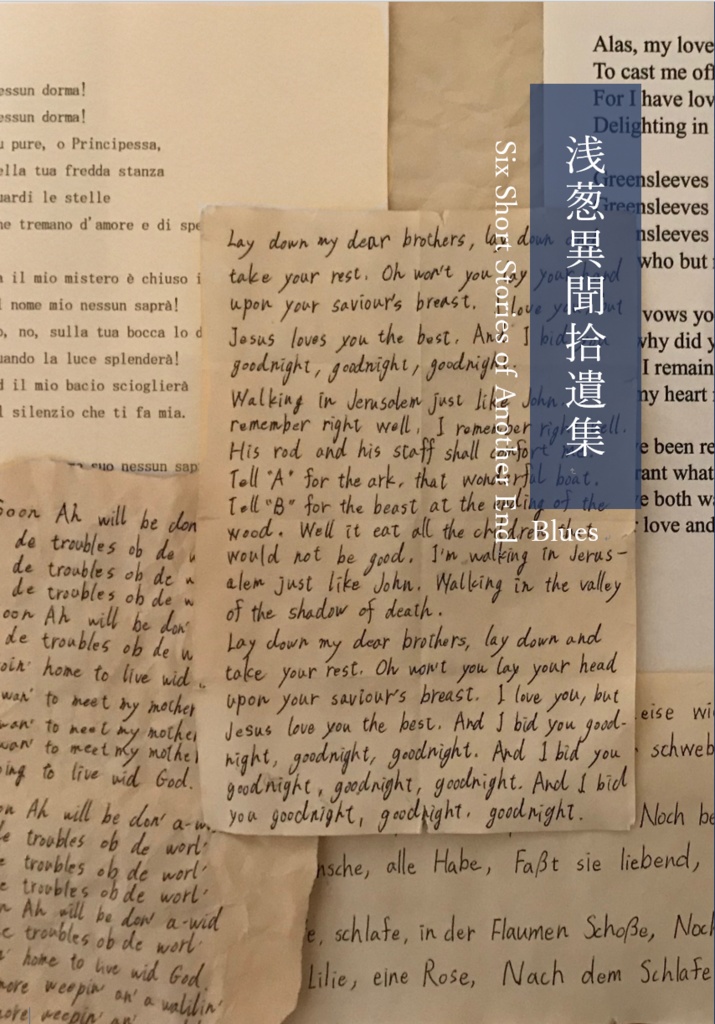 浅葱異聞拾遺集
Six Short Stories of Another Ind
Blues
essun dorma!
essun dorma!
u pure, o Principessa,
ella tua fredda stanza
uardi le stelle
he tremano d'amore e di spe
a il mio mistero è chiuso i
l nome mio nessun saprà!
o, no, sulla tua bocca lo d
uando la luce splenderà!
d il mio bacio scioglierà
l silenzio che ti fa mia.
suo nessun sap
Alas, my love
To cast me off
For I have lov
Delighting in
Greensleeves
Greensleeves
nsleeves
who but
vows yo
why did y
I remain
my heart
e been re
rant what
e both w
love and
Lay down my dear brothers, lay down
take your rest. Oh won't you lay your head
upon your saviour's breast. I love you, but
Jesus loves you the best. And I bid you
goodnight, goodnight, goodnight.
Walking in Jerusalem just like John. I
remember right well, I remember right well.
His rod and his staff shall comfort me.
Tell "A" for the ark, that wonderful boat.
Tell "B" for the beast at the ending of the
wood. Well it eat all the children that
would not be good. I'm walking in Jerus-
alem just like John. Walking in the valley
of the shadow of death.
Lay down my dear brothers, lay down and
take your rest. Oh won't you lay your head
upon your saviour's breast. I love you, but
Jesus love you the best. And I bid you good-
night, goodnight, goodnight. And I bid you
goodnight, goodnight, goodnight. And I bid
you goodnight, goodnight. goodnight.
Soon Ah will be don
de troubles ob de w
de troubles ob de w
de troubles ob de w
oon Ah will be don'
de troubles ob de w
oin' home to live wid
wan' to meet my mother
wan' to meet my mothe
wan' to meet my mothe
oing to live wid God.
on Ah will be don' a-w
de troubles ob de worl'
e troubles ob de worl'
e troubles ob de worl'
n Ah will be don' a-wid
e troubles ob de worl'
home to live wid God.
more weepin' an' a wailin'
more weepin' an'
eise wi
schweb
Noch be
nsche, alle Habe, Faßt sie liebend,
e, schlafe, in der Flaumen Schoße, Noch
Lilie, eine Rose, Nach dem Schlafe